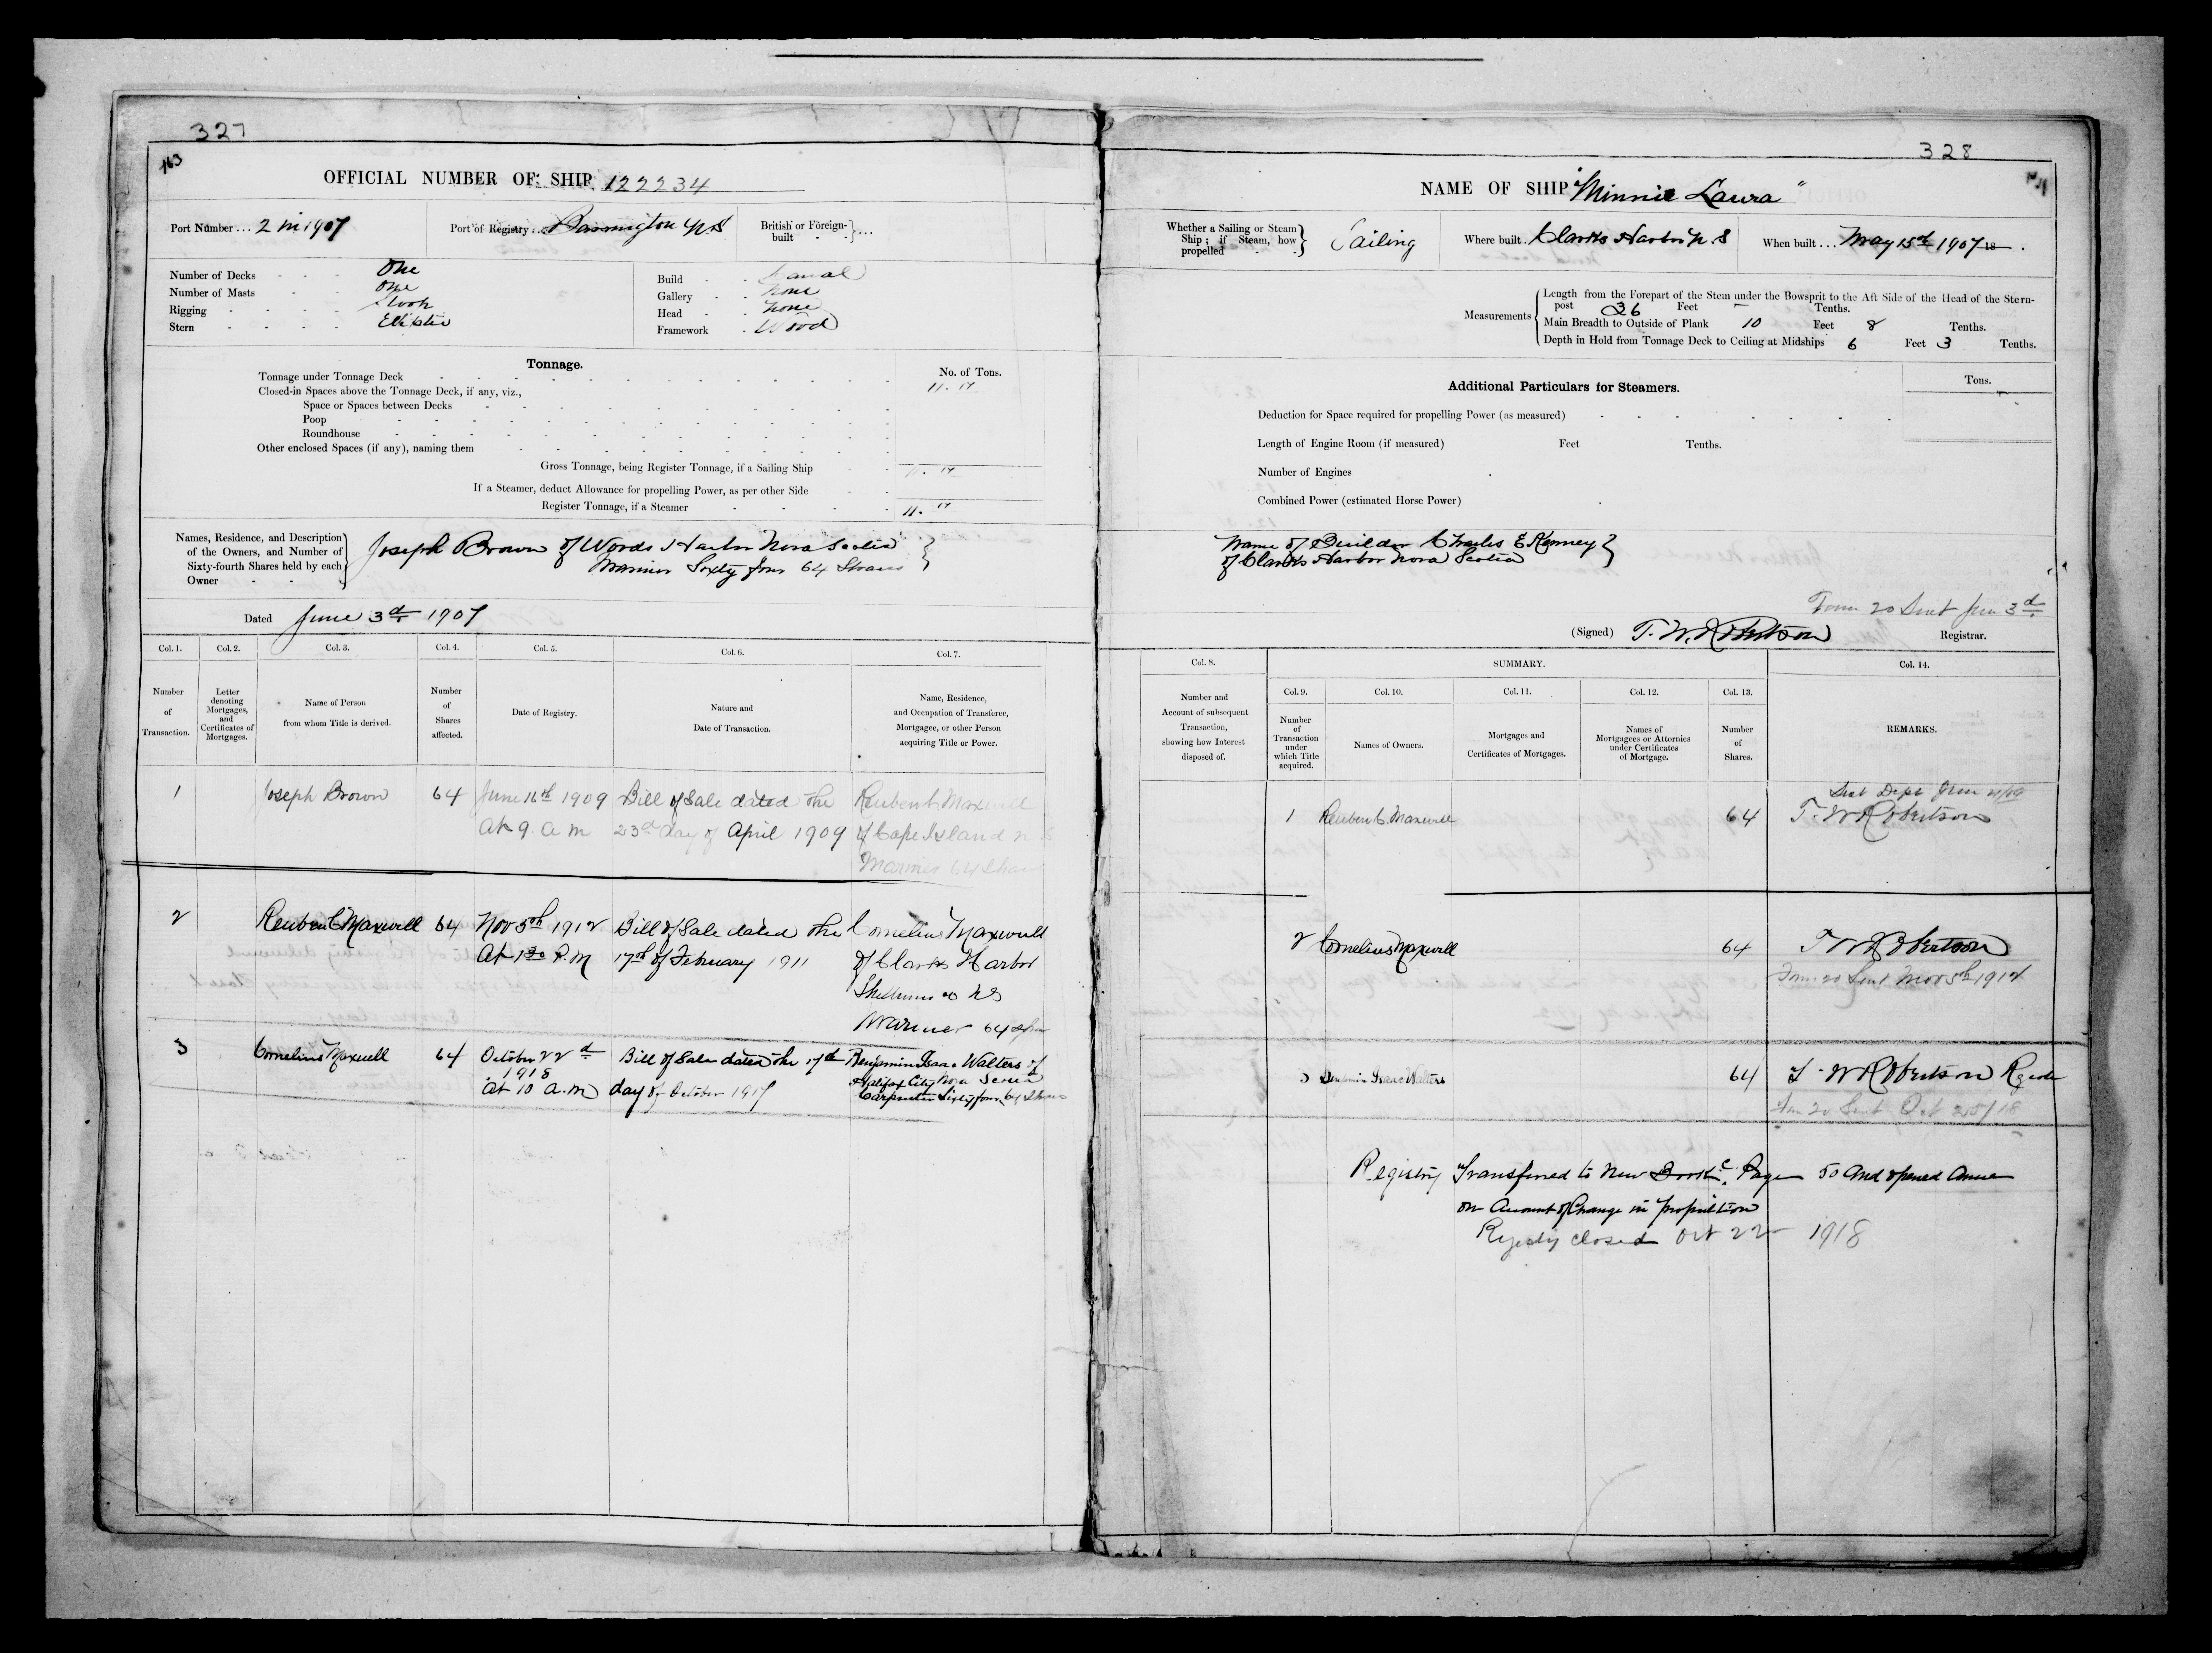 327
163
OFFICIAL NUMBER OF SHIP 122234
Port Number ... 2 in 1907
Port of Registry ... Barrington N.S
British or Foreign-built
Number of Decks One
Number of Masts One
Rigging Sloop
Stern Elliptic
Build Carval
Gallery None
Head None
Framework Wood
Tonnage.
No. of Tons.
Tonnage under Tonnage Deck 11.17
Closed-in Spaces above the Tonnage Deck, if any, viz.,
Space or Spaces between Decks
Poop
Roundhouse
Other enclosed Spaces (if any), naming them
Gross Tonnage, being Register Tonnage, if a Sailing Ship 11.17
If a Steamer, deduct Allowance for propelling Power, as per other Side
Register Tonnage, if a Steamer 11.17
Names, Residence, and Description of the Owners, and Number of Sixty-fourth Shares held by each Owner
Joseph Brown of Woods Harbor Nova Scotia
Mariner Sixty four 64 Shares
Dated June 3rd 1907
Col. 1. Col. 2. Col. 3. Col. 4. Col. 5. Col. 6. Col. 7.
Number of Transaction.
Letter denoting Mortgages, and Certificates of Mortgages.
Name of Person from whom Title is derived.
Number of Shares affected.
Date of Registry.
Nature and Date of Transaction.
Name, Residence, and Occupation of Transferee, Mortgagee, or other Person acquiring Title or Power.
1 Joseph Brown 64 June 16th 1909 Bill of Sale dated the Reuben C Maxwell
At 9. a m 23rd day of April 1909 of Cape Island N S
Mariner 64 Shares
2 Reuben C Maxwell 64 Nov 5th 1912 Bill of Sale dated the Cornelius Maxwell
At 1 30 P.M 17th of February 1911 of Clarks Harbor
Shelburne Co NS
Mariner 64
3 Cornelius Maxwell 64 October 22d Bill of Sale dated the 17th Benjamin Isaac Walters of
1918 Halifax City Nova Scotia
At 10 A.M day of October 1917 Carpenter Sixty four 64 Shares
328
NAME OF SHIP "Minnie Laura"
Whether a Sailing or Steam Ship; if Steam, how propelled
Sailing
Where built Clarks Harbor N. S
When built ... May 15th 1907 18
Measurements
Length from the Forepart of the Stem under the Bowsprit to the Aft Side of the Head of the Stern-
post 36 Feet - Tenths.
Main Breadth to Outside of Plank 10 Feet 8 Tenths.
Depth in Hold from Tonnage Deck to Ceiling at Midships 6 Feet 3 Tenths.
Additional Particulars for Steamers.
Tons.
Deduction for Space required for propelling Power (as measured)
Length of Engine Room (if measured) Feet Tenths.
Number of Engines
Combined Power (estimated Horse Power)
Name of Builder Charles E Kenney
of Clarks Harbor Nova Scotia
Form 20 Sent June 3d
(Signed) T. W. Robertson Registrar.
Col. 8. SUMMARY. Col. 14.
Col. 9. Col. 10. Col. 11. Col. 12. Col. 13.
Number and Account of subsequent Transaction, showing how Interest disposed of.
Number of Transaction under which Title acquired.
Names of Owners.
Mortgages and Certificates of Mortgages.
Names of Mortgagees or Attornies under Certificates of Mortgage.
Number of Shares.
REMARKS.
Sent Dept June 21/09
1 Reuben C. Maxwell 64 T. W Robertson
2 Cornelius Maxwell 64 T W Robertson
Form 20 Sent Nov 5th 1912
3 Benjamin Isaac Walters 64 T W Robertson
Form 20 Sent Oct 25/18
Registry Transferred to New Book C. Page 50 and opened Anew
on Account of Change in propulsion
Registry closed Oct 22 1918